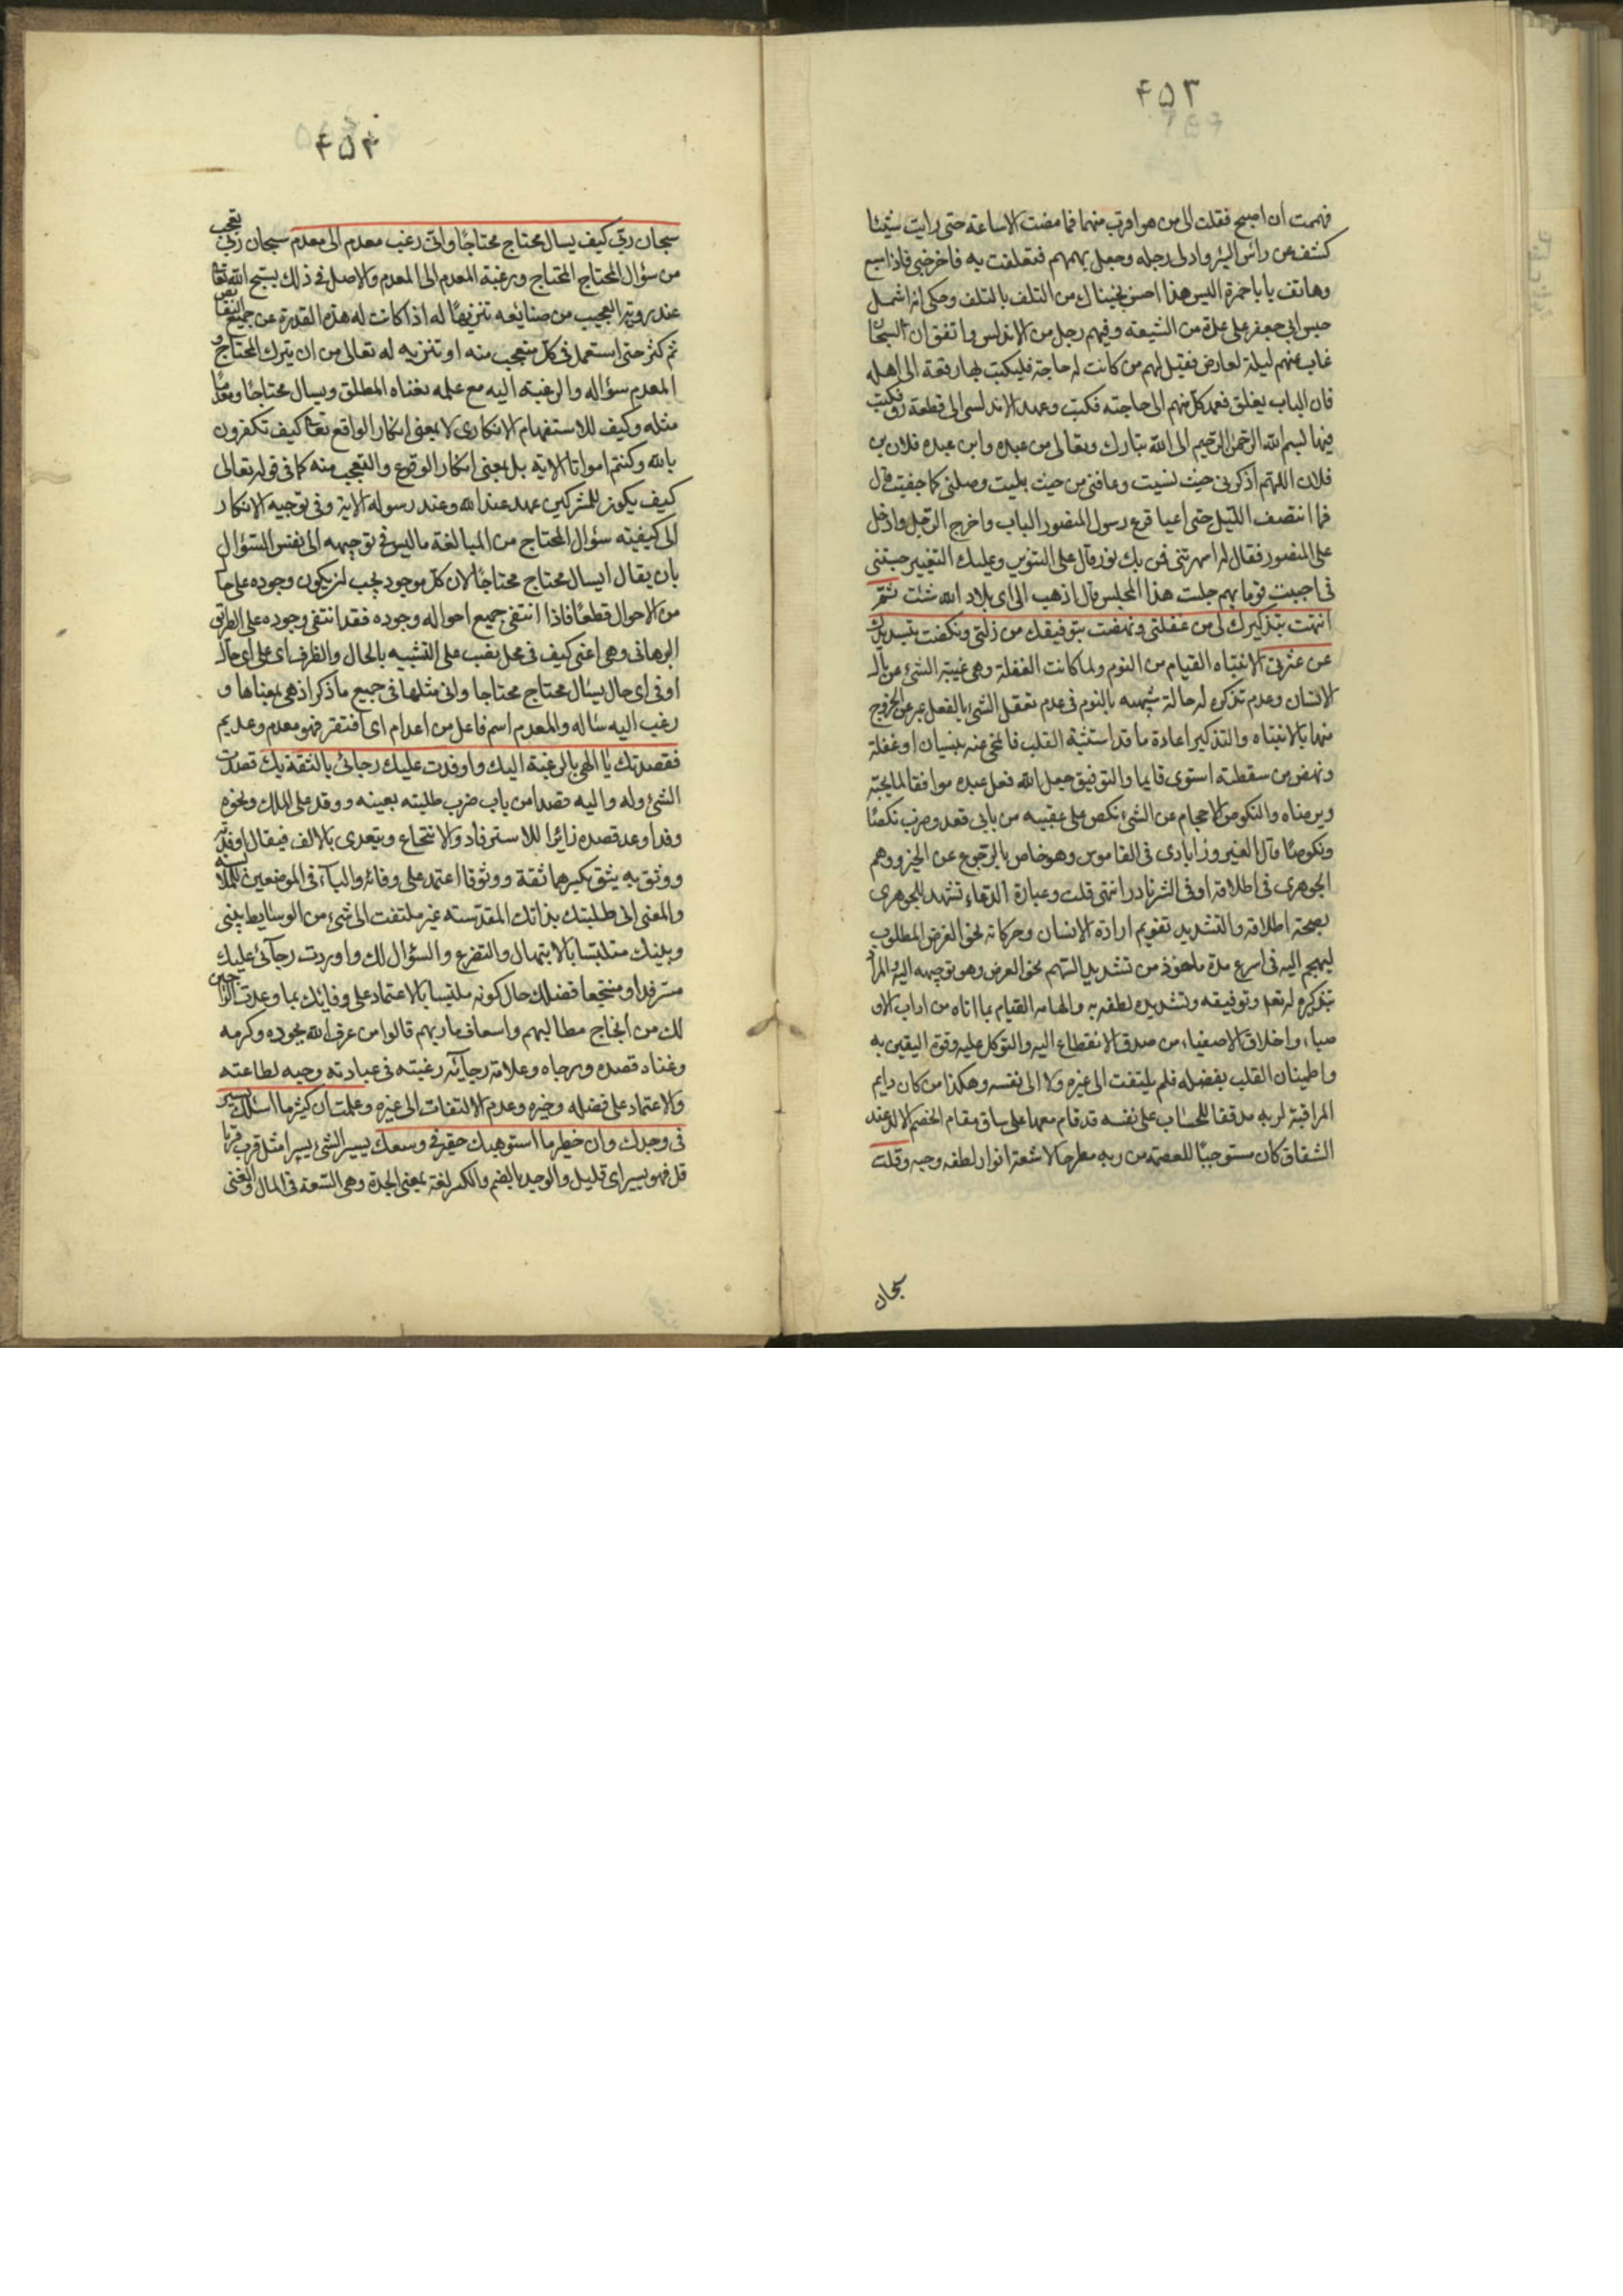 ۴۵۳
فهممت ان اصيح فقلت الى من هو اقرب منهما فما مضت الا ساعة حتى رايت شيئا
كشف عن رأس البئر وادلى رجله وجعل يهمهم فتعلقت به فاخرجنى فاذا سبع
وهاتف يا با حمزة اليس هذا احسن نجيناك من التلف بالتلف وحكى انه اشتمل
حبس ابى جعفر على عدة من الشيعة وفيهم رجل من الاندلس واتفق ان السجان
غاب عنهم ليلة لعارض فقيل لهم من كانت له حاجة فليكتب بها رقعة الى اهله
فان الباب يغلق فعمد كل منهم الى حاجته فكتب وعمد الاندلسى الى قطعة رق فكتب
فيها بسم الله الرحمن الرحيم الى الله تبارك وتعالى من عبده وابن عبده فلان بن
فلان اللهم اذكرنى حيث نسيت وعافنى من حيث بليت وصلنى كما جفيت قال
فما انتصف الليل حتى اعيا قرع رسول المنصور الباب واخرج الرجل وادخل
على المنصور فقال له اسهرتنى فمن بك نور قال على التنوير وعليك التغيير حبستنى
فى اجبت قوما بهم جلست هذا المجلس قال اذهب الى اى بلاد الله شئت ثم
انتهت بتذكيرك لى من غفلتى ونهضت بتوفيقك من زلتى ونكصت بتسديدك
عن عثرتى الانتباه القيام من النوم ولما كانت الغفلة وهى غيبة الشئ عن بال
الانسان وعدم تذكره له حالة شبيهة بالنوم فى عدم تعقل الشئ بالفعل عبر عن الخروج
منها بالانتباه والتذكير اعادة ما قد استثبته القلب فانمحى عنه بنسيان او غفلة
ونهض من سقطته استوى قايما والتوفيق جعل الله فعل عبده موافقا لما يحبه
ويرضاه والنكوص الاحجام عن الشئ نكص على عقبيه من بابى قعد وضرب نكصا
ونكوصا قال الفيروزابادى فى القاموس وهو خاص بالرجوع عن الخير ووهم
الجوهرى فى اطلاقه او فى الشر نادر انتهى قلت وعبارة الدعاء تشهد للجوهرى
بصحة اطلاقه والتسديد تقويم ارادة الانسان وحركاته نحو الغرض المطلوب
ليهجم اليه فى اسرع مدة ماخوذ من تسديد السهم نحو الغرض وهو توجيهه اليه والمراد
بتذكيره له تعالى وتوفيقه وتسديده لطفه به والهامه القيام بما اتاه من اداب الاو
صياء واخلاق الاصفياء من صدق الانقطاع اليه والتوكل عليه وقوة اليقين به
واطمينان القلب بفضله فلم يلتفت الى غيره ولا الى نفسه وهكذا من كان دايم
المراقبة لربه مدققا للحساب على نفسه قد قام معها على ساق مقام الخصم الالد عند
الشقاق كان مستوجبا للعصمة من ربه مطرحا لاشعة انوار لطفه وحبه وقلت
سبحان
۴۵۴
سبحان ربى كيف يسال محتاج محتاجا وانى رغب معدم الى معدم سبحان ربى تعجب
من سؤال المحتاج المحتاج ورغبة المعدم الى المعدم والاصل فى ذلك يسبح الله تعالى
عند روية العجيب من صنائعه تنزيها له اذا كانت له هذه القدرة عن جميع النقائص
ثم كثر حتى استعمل فى كل متعجب منه او تنزيه له تعالى من ان يترك المحتاج و
المعدم سؤاله والرغبة اليه مع علمه بغناه المطلق ويسال محتاجا ومعدما
مثله وكيف للاستفهام الانكارى لا بمعنى انكار الواقع كيف تكفرون
بالله وكنتم امواتا الاية بل بمعنى انكار الوقوع والتعجب منه كما فى قوله تعالى
كيف يكون للمشركين عهد عند الله وعند رسوله الاية وفى توجيه الانكار
الى كيفيته سؤال المحتاج من المبالغة ما ليس فى توجيهه الى نفس السؤال
بان يقال ايسال محتاج محتاجا لان كل موجود يجب ان يكون وجوده على حال
من الاحوال قطعا فاذا انتفى جميع احواله وجوده فقد انتفى وجوده على الطريق
البرهانى وهى اعنى كيف فى محل نصب على التشبيه بالحال والظرف اى على اى حال
او فى اى حال يسال محتاج محتاجا وانى مثلها فى جميع ما ذكر اذ هى بمعناها و
رغب اليه ساله والمعدم اسم فاعل من اعدام اى افتقر فهو معدم وعديم
فقصدتك يا الهى بالرغبة اليك واوفدت عليك رجائى بالثقة بك قصدت
الشئ وله واليه قصدا من باب ضرب طلبته بعينه ووفد على الملك ونحوه
وفدا وعد قصده زائرا للاسترفاد والانتجاع ويتعدى بالالف فيقال اوفدته
ووثق به يثق بكسرهما ثقة ووثوقا اعتمد على وفائه والباء فى الموضعين للملابسة
والمعنى انى طلبتك بذاتك المقدسته غير ملتفت الى شئ من الوسايط بينى
وبينك متلبسا بالابتهال والتضرع والسؤال لك واوردت رجائى عليك
مسترفدا ومنتجعا فضلك حال كونه ملتبسا بالاعتماد على وفائك بما وعدت الراجين
لك من انجاح مطالبهم واسعاف ماربهم قالوا من عرف الله بجوده وكرمه
وغناه قصده ورجاه وعلامة رجائه رغبته فى عبادته وحبه لطاعته
والاعتماد على فضله وخيره وعدم الالتفات الى غيره وعلمت ان كثير ما اسئلك يسير
فى وجدك وان خطير ما استوهبك حقير فى وسعك يسير الشئ يسيرا مثل قرب قربا
قل فهو يسير اى قليل والوجد بالضم والكسر لغة بمعنى الجدة وهى السعة فى المال والغنى